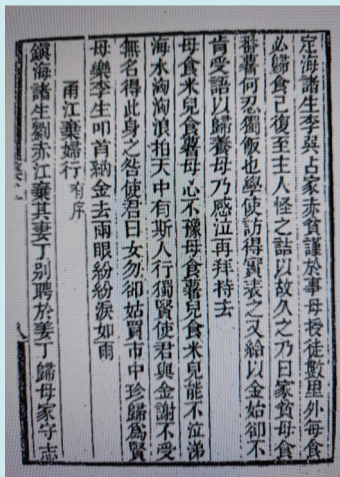 定海諸生李與占家赤貧謹於事母授徒數里外每食
必歸食已復至主人怪之詰以故久之乃曰家貧母食
番薯何忍獨飯也學使訪得實表之又給以金始卻不
肯受語以歸養母乃感泣再拜持去
母食米兒食薯母心不豫母食薯兒食米兒能不泣涕
海水洶洶浪拍天中有斯人行獨賢使君與金謝不受
無名得此身之咎使君曰女勿卻姑買市中珍歸爲賢
母樂李生叩首納金去兩眼紛紛淚如雨
甬江棄婦行有序
鎮海諸生劉赤江棄其妻丁別聘於姜丁歸母家守志